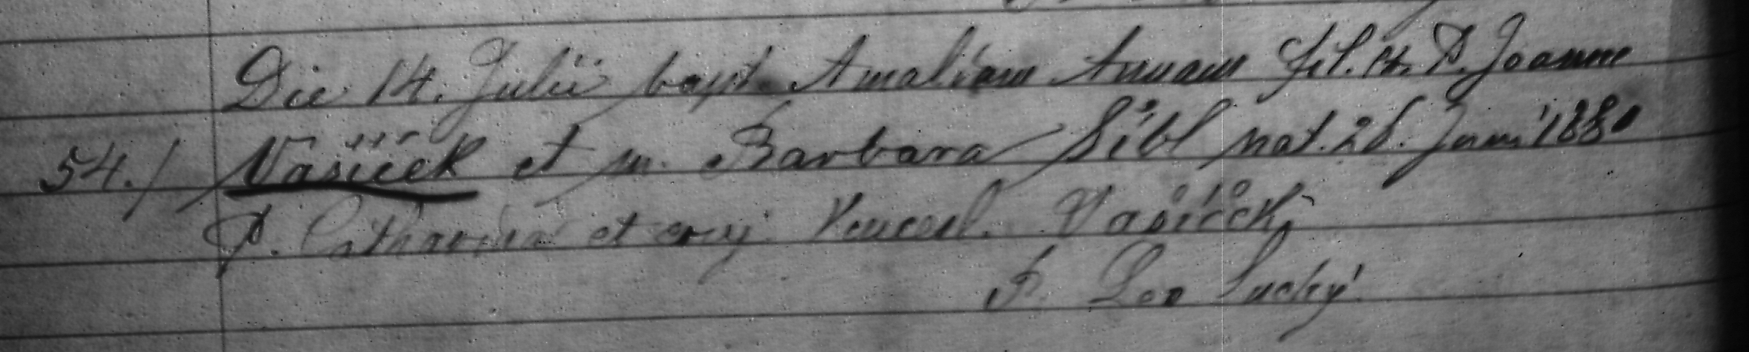 Die 14. Julii bapt. Amaliam Annam fil. l. P. Joanne
54./ Vašíček et m. Barbara Šibl nat. 28. Juni 1880
P. Catharina et conj. Vencesl. Vašíček
P. Leo Suchý